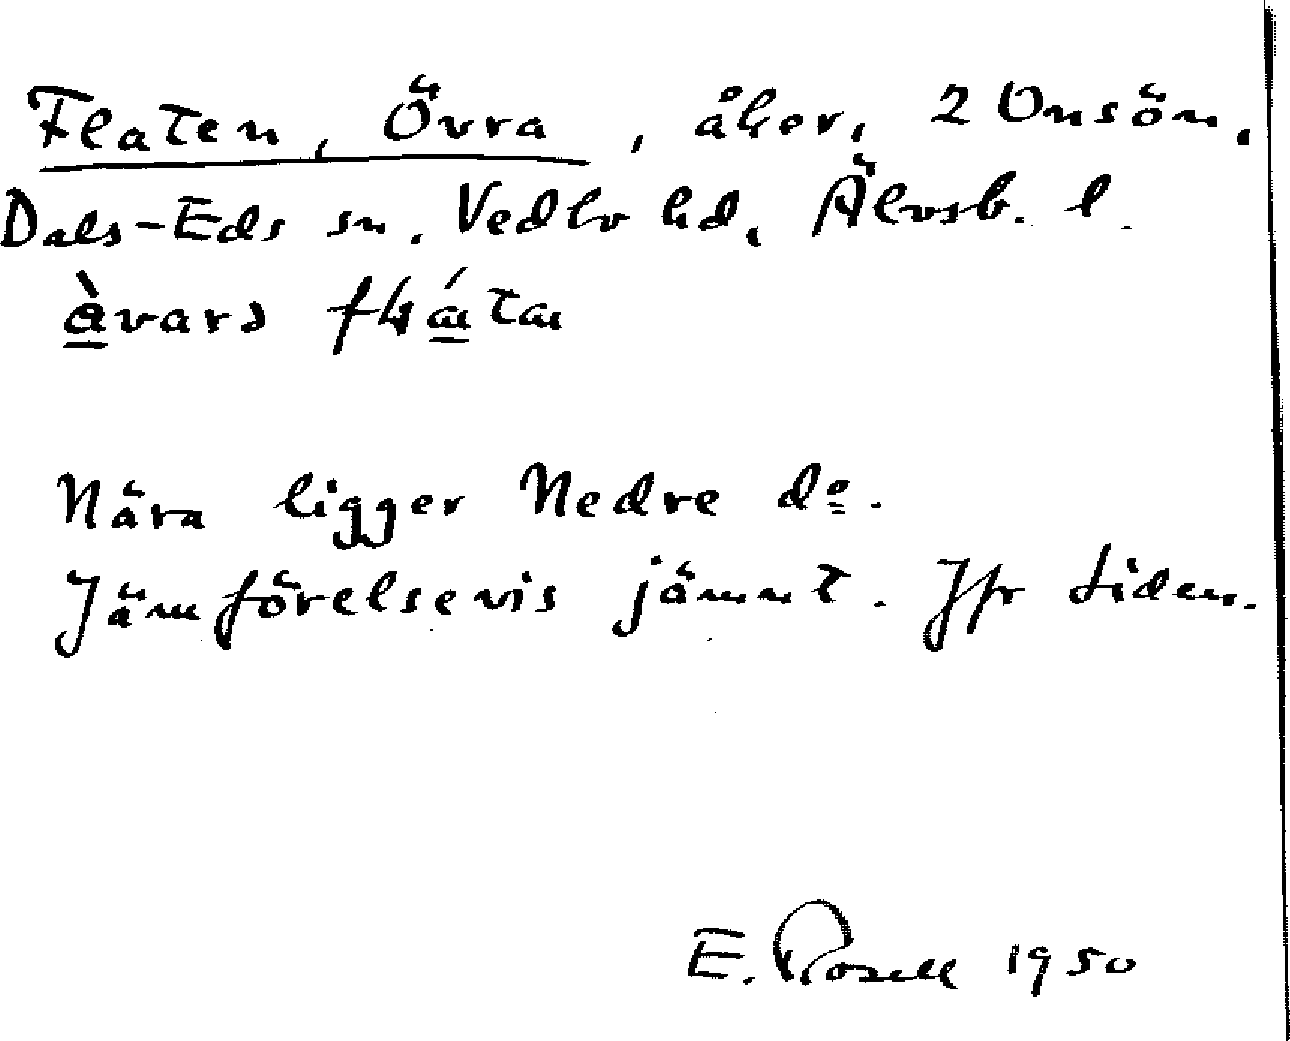 Flaten, Övra, åker, 2 Onsön,
Dals-Eds sn. Vedbo hd, Älvsb. l.
Nära ligger Nedre do.
Jämförelsevis jämnt. Jfr Liden.
E. Rosell 1950